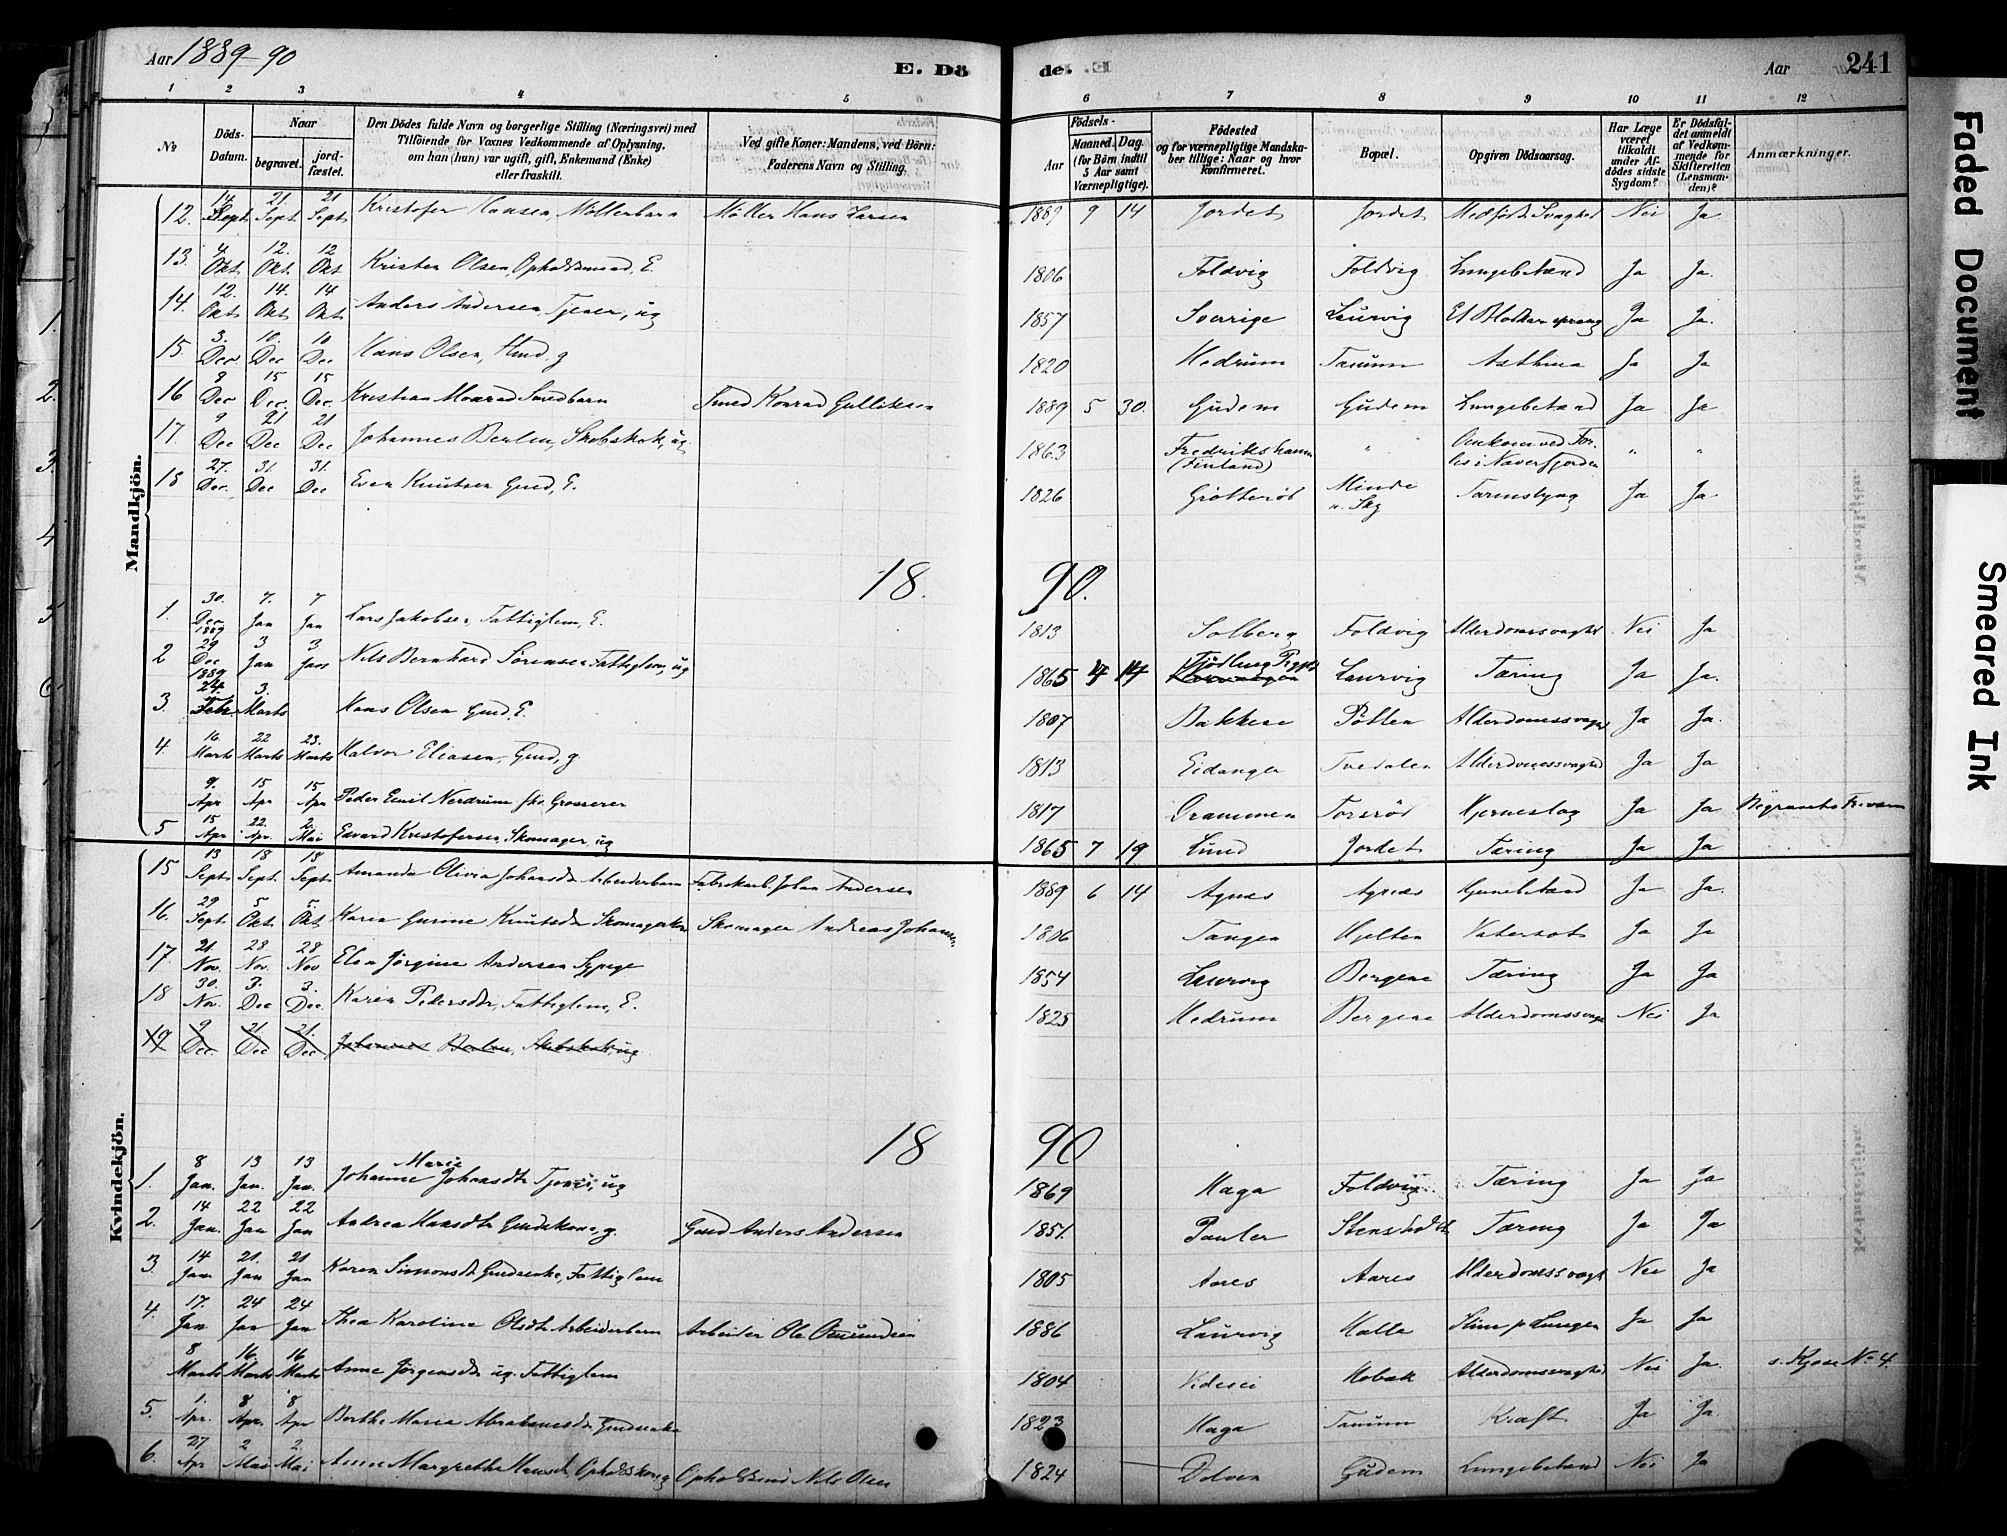 Aar 1889-90
E. Dö
de.
Aar
241
1 2 3 4 5 6 7 8 9 10 11 12
No
Döds-Datum.
Naar
begravet.
jord-fæstet.
Den Dödes fulde Navn og borgerlige Stilling (Næringsvei) med
Tilföiende for Voxnes Vedkommende af Oplysning,
om han (hun) var ugift, gift, Enkemand (Enke)
eller fraskilt.
Ved gifte Koner: Mandens, ved Börn:
Faderens Navn og Stilling.
Födsels-
Aar
Maaned. Dag.
(for Börn indtil
5 Aar samt
Værnepligtige).
Födested
og for værnepligtige Mandska-
ber tillige: Naar og hvor
konfirmeret.
Bopæl.
Opgiven Dödsaarsag.
Har Læge
været
tilkaldt
under Af-
dödes sidste
Sygdom?
Er Dödsfal-
det anmeldt
af Vedkom-
mende for
Skifteretten
(Lensman-
den)?
Anmærkninger.
Mandkjön.
12. 14 Sept. 21. Sept. 21 Sept. Kristofer Hansen Möllerbarn Møller Hans Larsen 1889 9 14 Jordet Jordet Medfödt Svaghed Nei Ja
13. 4 Okt. 12. Okt. 12 Okt Kristen Olsen, Opholdsmand, E. 1806 Foldvig Foldvig Lungebetænd Ja Ja.
14. 12. Okt 14. Okt 14 Okt Anders Andersen Tjener, ug 1857 Sverrige Laurvig Et Blodkar sprang Ja Ja.
15. 3. Dec 10. Dec 10 Dec Hans Olsen, Gmd, g 1820 Hedrum Tanum Asthma Ja Ja
16 8 Dec 15 Dec. 15 Dec. Kristian Monrad Smedbarn Smed Konrad Gulliksen 1889 5 30. Gudem Gudem Lungebetænd Ja Ja
17 9 Dec 21 Dec 21 Dec Johannes Berlin, Skibskok, ug. 1863 Fredrikshamn (Finland) " Omkom ved Forlis i Naverfjorden " "
18 27. Dec. 31. Dec 31. Dec Even Knutsen Gmd, E. 1826 Grötteröd Minde u. Skg Tarmslyng Ja Ja
18. 90.
1. 30. Dec 1889 7. Jan 7 Jan Lars Jakobsen, Fattiglem, E. 1813 Solberg Foldvig Alderdomssvaghed Nei Ja
2 29 Dec 1889 3 Jan 3 Jan Nils Bernhard Sörensen Fattiglem, ug 1865 4 14 Tjödling Laurvig Tæring Ja Ja.
3. 24. Febr 3. Marts Hans Olsen Gmd, E. 1807 Bakkene Pöllen Alderdomssvaghed Ja Ja.
4. 16. Marts 22 Marts 23. Marts Halvor Eliasen, Gmd, g. 1813 Eidanger Tvedalen Alderdomssvaghed Ja Ja
9. Apr 15 Apr 15 Apr Peder Emil Nerdrum fhv. Grosserer 1817 Drammen Torsröd Hjerneslag Ja Ja Begravet i Fr.værn
5 15 Apr 22. Apr. 2. Mai Edvard Kristofersen, Skomager, ug 1865 7 19 Lund Jordet Tæring Ja Ja
Kvindekjön.
15 13 Sept. 18 Sept. 18 Sept Amanda Olivia Johansdtr Arbeiderbarn Fabrikarb. Johan Andersen 1889 6 14 Agnes Agnes Hjernebetænd Ja Ja.
16. 29 Sept. 5 Okt 5. Okt Karen Gurine Knutsdtr Skomagerkone Skomager Andreas Johansen 1806 Tangen Hjelten Vatersot Ja Ja
17. 21. Nov. 28. Nov. 28 Nov Elen Jörgine Andersen Sypige 1854 Laurvig Bergene Tæring Ja Ja
18 30. Nov. 3. Dec 3. Dec. Karen Pedersdtr, Fattiglem, E. 1825 Hedrum Bergene Alderdomssvagh Nei Ja
19 9 Dec. 21. Dec 21. Dec Johannes Berlin, Skibskok, ug
18 90
1. 8 Jan. 13 Jan. 13 Jan. Johanne Marie Johansdtr Tjener, ug 1869 Haga Foldvig Tæring Ja Ja
2. 14 Jan. 22 Jan 22 Jan Andrea Hansdtr Gmdskone, g. Gmd Anders Andersen 1851. Pauler Stensholt Tæring Ja Ja
3. 14 Jan 21. Jan 21 Jan Karen Simonsdtr Gmdsenke, Fattiglem 1805 Aares Aares Alderdomssvagh Nei Ja
4. 17. Jan 24 Jan 24 Jan Thea Karoline Olsdtr Arbeiderbarn Arbeider Ole Osmundsen 1886 Laurvig Halle Slim p Lungen Ja Ja
8 Marts 16. Marts 16 Marts Anne Jörgensdtr ug. Fattiglem 1804 Hobæk Alderdomssvaghed Nei Ja. s. Kjose No 4.
5. 1. Apr. 8 Apr. 8 Apr Berthe Maria Abrahamsdtr, Gmdsenke 1823 Haga Tanum Kræft Ja Ja.
6. 27 Apr 2 Mai 2. Mai Anne Margrethe Hansdt, Opholdskone g Opholdsmd Nils Olsen 1824 Dolven Gudem Lungebetænd Nei Ja
Faded Document
Smeared Ink